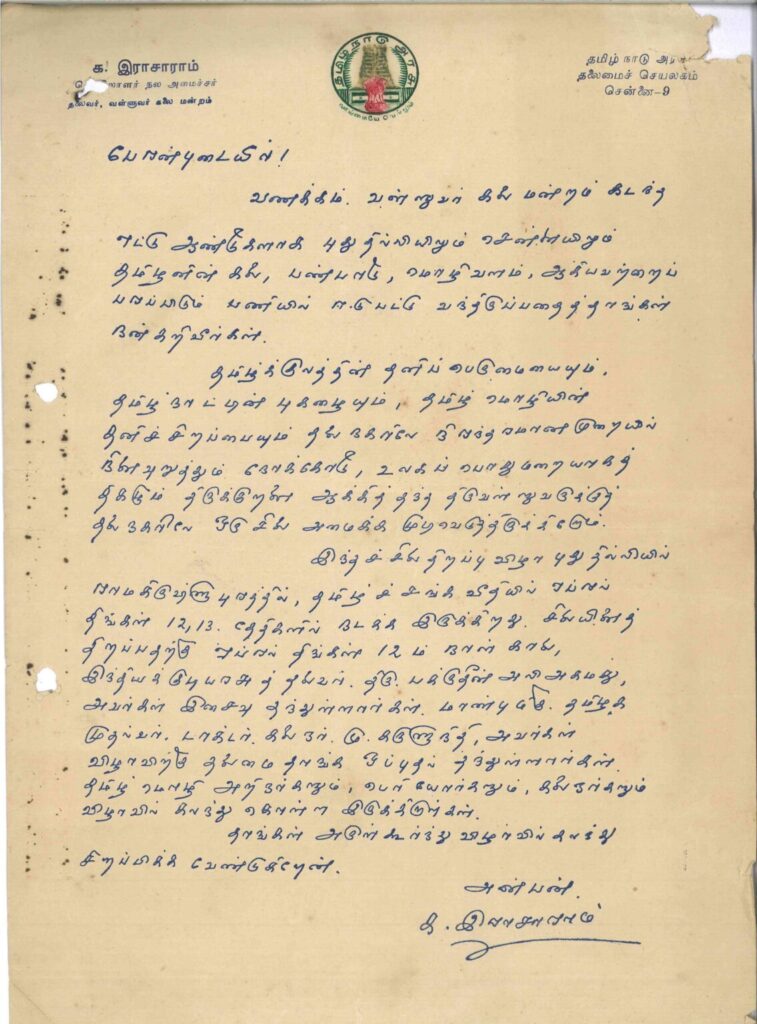 க. இராசாராம்
நல அமைச்சர்
தலைவர், வள்ளுவர் கலை மன்றம்
தமிழ்நாடு அரசு
வாய்மையே வெல்லும்
தமிழ் நாடு அரசு
தலைமைச் செயலகம்
சென்னை-9
பேரன்புடையீர்!
வணக்கம். வள்ளுவர் கலை மன்றம் கடந்த
எட்டு ஆண்டுகளாக புதுதில்லியிலும் சென்னையிலும்
தமிழனின் கலை, பண்பாடு, மொழிவளம், ஆகியவற்றைப்
பரப்பிடும் பணியில் ஈடுபட்டு வந்திருப்பதைத் தாங்கள்
நன்கறிவீர்கள்.
தமிழ்க்குலத்தின் தனிப் பெருமையையும்,
தமிழ் நாட்டின் புகழையும், தமிழ் மொழியின்
தனிச் சிறப்பையும் தலைநகரிலே நிரந்தரமான முறையில்
நிலைநிறுத்தும் நோக்கோடு, உலகப் பொதுமறையாகத்
திகழும் திருக்குறளை ஆக்கித் தந்த திருவள்ளுவருக்குத்
தலைநகரிலே ஒரு சிலை அமைக்க முடிவெடுத்திருக்கிறோம்.
இந்தச் சிலை திறப்பு விழா புதுதில்லியில்
ராமகிருஷ்ணபுரத்தில், தமிழ்ச் சங்க வீதியில் ஏப்ரல்
திங்கள் 12,13. தேதிகளில் நடக்க இருக்கிறது. சிலையினைத்
திறப்பதற்கு ஏப்ரல் திங்கள் 12ம் நாள் காலை,
இந்தியக் குடியரசுத் தலைவர். திரு. பக்ருதீன் அலி அகமது,
அவர்கள் இசைவு தந்துள்ளார்கள். மாண்புமிகு. தமிழக
முதல்வர். டாக்டர். கலைஞர். மு. கருணாநிதி, அவர்கள்
விழாவிற்கு தலைமை தாங்க ஒப்புதல் தந்துள்ளார்கள்.
தமிழ் மொழி அறிஞர்களும், பெரியோர்களும், கலைஞர்களும்
விழாவில் கலந்து கொள்ள இருக்கிறார்கள்.
தாங்கள் அருள் கூர்ந்து விழாவில் கலந்து
சிறப்பிக்க வேண்டுகிறேன்.
அன்பன்.
க. இராசாராம்